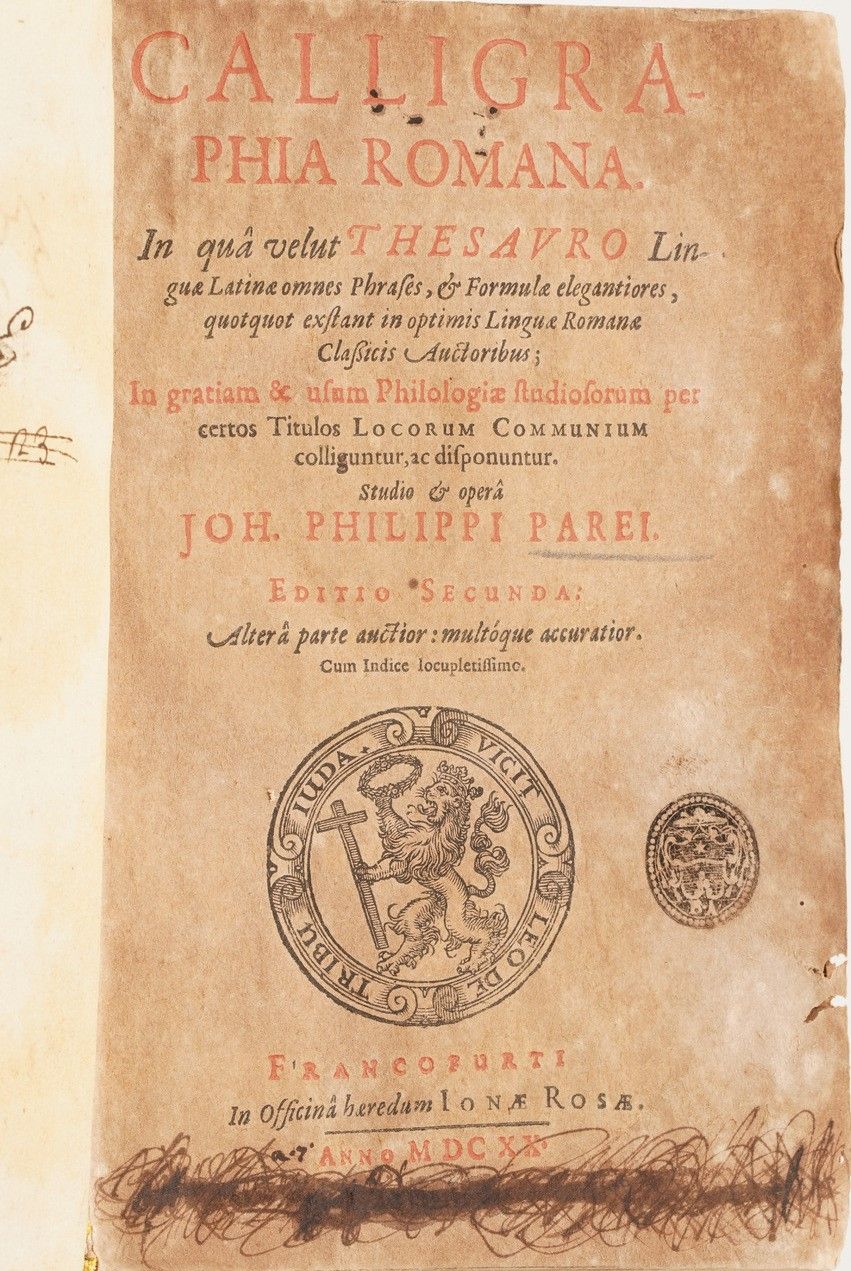 CALLIGRA-
PHIA ROMANA.
In quâ velut THESAVRO Lin-
guæ Latinæ omnes Phraſes, & Formulæ elegantiores,
quotquot exſtant in optimis Linguæ Romanæ
Claſſicis Auctoribus;
In gratiam & uſum Philologiæ ſtudioſorum per
certos Titulos LOCORUM COMMUNIUM
colliguntur, ac diſponuntur.
Studio & operâ
JOH. PHILIPPI PAREI.
EDITIO SECUNDA:
Alterâ parte auctior: multóque accuratior.
Cum Indice locupletiſſimo.
VICIT LEO DE TRIBU IUDA.
FRANCOFURTI
In Officinâ hæredum IONÆ ROSÆ.
ANNO MDCXX